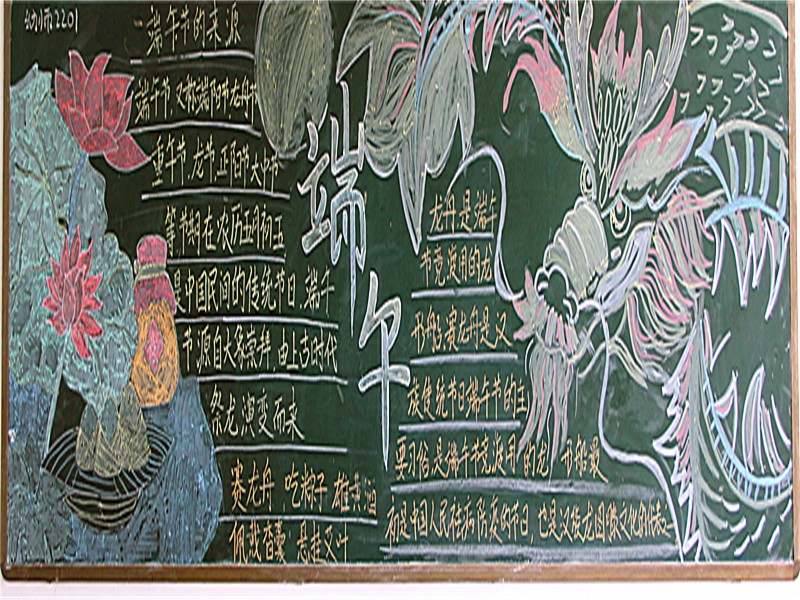 幼师2201
一端午节的来源
端午节,又称端阳节,龙舟节
重午节,龙节,正阳节,天中节
等节期在农历五月初五
是中国民间的传统节日,端午
节,源自天象崇拜,由上古时代
祭龙演变而来
赛龙舟,吃粽子 雄黄酒
佩戴香囊 悬挂艾叶
端午
龙舟是端午
节竞渡用的龙
形船,赛龙舟是汉
族传统节日端午节的主
要习俗是端午节竞渡用的龙 形船最
而是中国人民祛病防疫的节日,也是汉族龙图像文化的代表